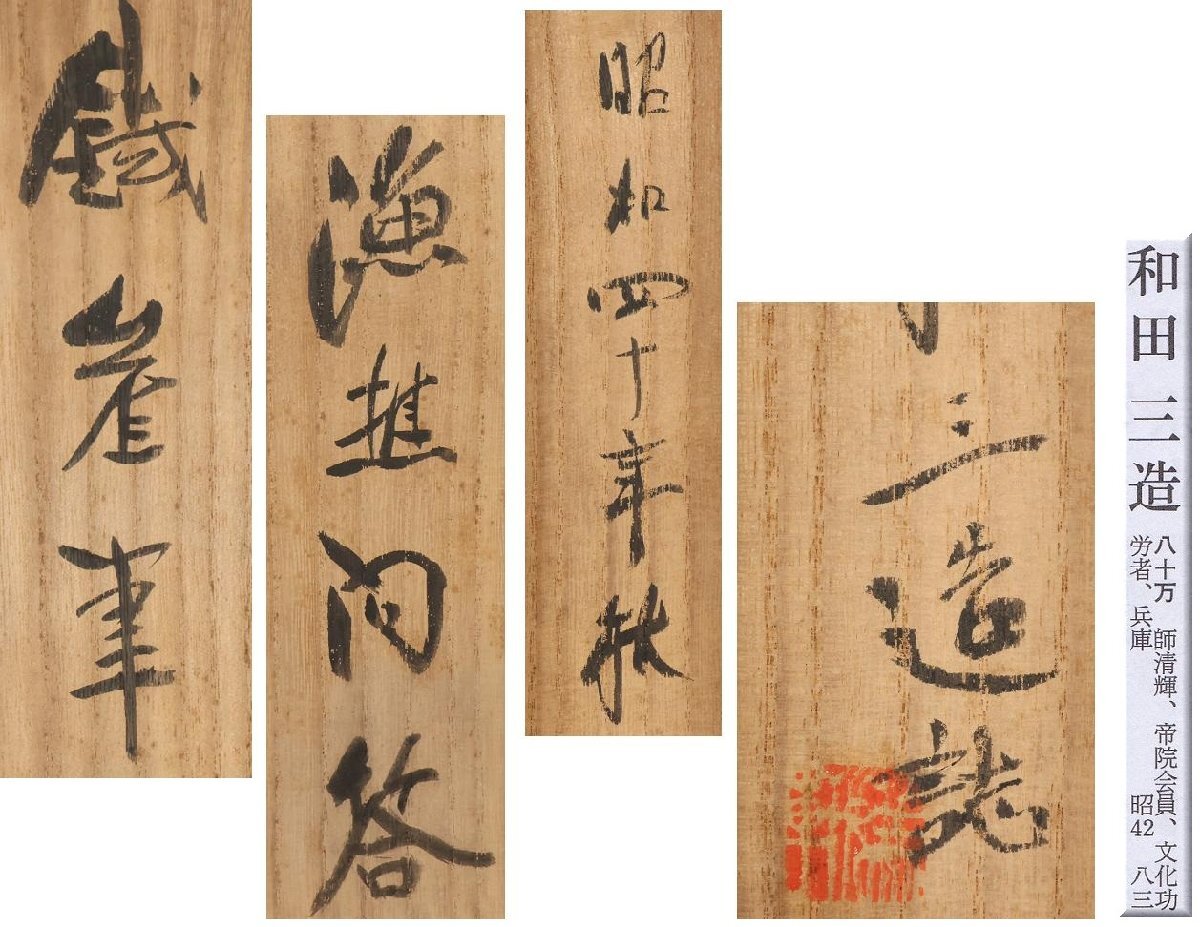 鐵崖筆
漁樵問答
昭和四十年秋
三造誌
和田三造
八十万 師清輝、帝院会員、文化功
労者、兵庫 昭42 八三